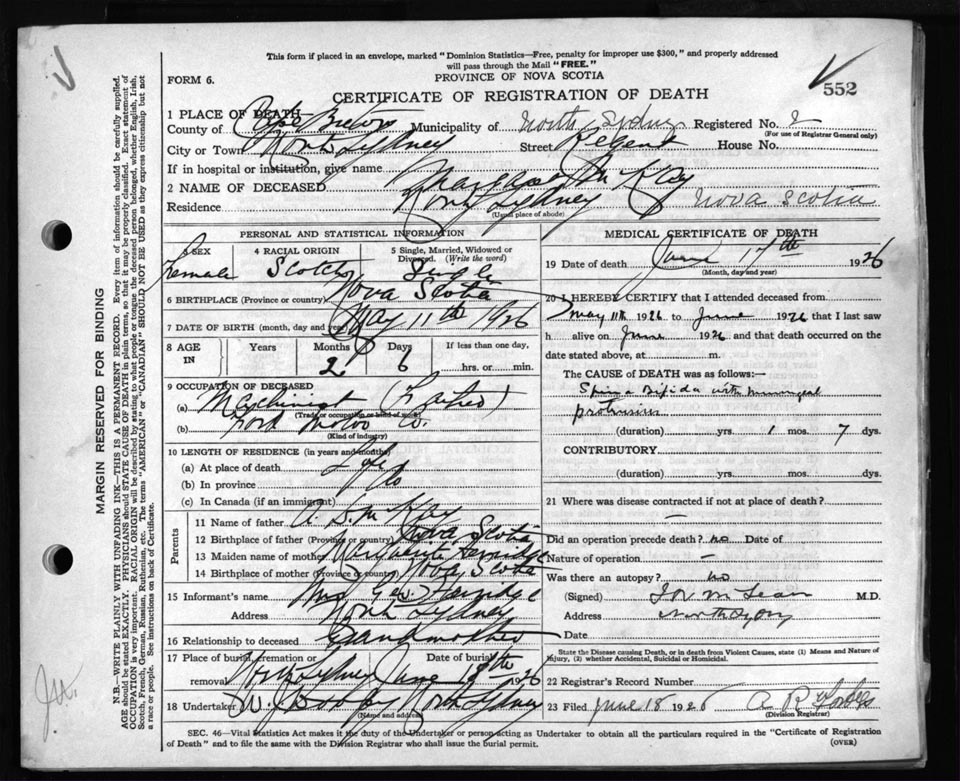 This form if placed in an envelope, marked "Dominion Statistics—Free, penalty for improper use $300," and properly addressed
will pass through the Mail "FREE."
FORM 6.
PROVINCE OF NOVA SCOTIA
552
CERTIFICATE OF REGISTRATION OF DEATH
1 PLACE OF DEATH—
County of Cape Breton Municipality of North Sydney Registered No. 2
(For use of Registrar General only)
City or Town North Sydney Street Regent House No.
If in hospital or institution, give name
2 NAME OF DECEASED Margaret McKay
Residence North Sydney Nova Scotia
(Usual place of abode)
PERSONAL AND STATISTICAL INFORMATION
SEX 4 RACIAL ORIGIN 5 Single, Married, Widowed or
Divorced. (Write the word)
Female Scotch Single
6 BIRTHPLACE (Province or country) Nova Scotia
7 DATE OF BIRTH (month, day and year) May 11th 1926
8 AGE IN Years Months Days If less than one day,
6 hrs. or min.
9 OCCUPATION OF DECEASED
(a) Machinist (Father)
(Trade or occupation or kind of work)
(b) Ford Motor Co.
(Kind of industry)
10 LENGTH OF RESIDENCE (in years and months)
(a) At place of death Life
(b) In province do
(c) In Canada (if an immigrant)
Parents
11 Name of father McKay
12 Birthplace of father (Province or country) Nova Scotia
13 Maiden name of mother
14 Birthplace of mother (Province or country) Nova Scotia
15 Informant's name Mrs
Address North Sydney
16 Relationship to deceased Grandmother
17 Place of burial, cremation or removal Date of burial
North Sydney June 1926
18 Undertaker W. North Sydney
(Name and address)
MEDICAL CERTIFICATE OF DEATH
19 Date of death June 17th 1926
(Month, day and year)
20 I HEREBY CERTIFY that I attended deceased from
May 11th 1926 to June 1926 that I last saw
h alive on June 1926 and that death occurred on the
date stated above, at m.
The CAUSE OF DEATH was as follows:—
Spina Bifida with
(duration) yrs. 1 mos. 7 dys.
CONTRIBUTORY
(duration) yrs. mos. dys.
21 Where was disease contracted if not at place of death?
—
Did an operation precede death? no Date of
Nature of operation —
Was there an autopsy? no
(Signed) McLean M.D.
Address North Sydney
Date
State the Disease causing Death, or in death from Violent Causes, state (1) Means and Nature of
Injury, (2) whether Accidental, Suicidal or Homicidal.
22 Registrar's Record Number
23 Filed June 18 1926 A R Forbes
(Division Registrar)
SEC. 46—Vital Statistics Act makes it the duty of the Undertaker or person acting as Undertaker to obtain all the particulars required in the "Certificate of Registration
of Death" and to file the same with the Division Registrar who shall issue the burial permit.
(OVER)
MARGIN RESERVED FOR BINDING
N.B.—WRITE PLAINLY WITH UNFADING INK—THIS IS A PERMANENT RECORD. Every item of information should be carefully supplied.
AGE should be stated EXACTLY. PHYSICIANS should STATE CAUSE OF DEATH in plain terms, so that it may be properly classified. Exact statement of
OCCUPATION is very important. RACIAL ORIGIN will be described by stating to what people or tongue the deceased person belonged, whether English, Irish,
Scotch, French, German, Russian, Ruthenian, etc. The terms "AMERICAN" or "CANADIAN" SHOULD NOT BE USED as they express citizenship but not
a race or people. See instructions on back of Certificate.